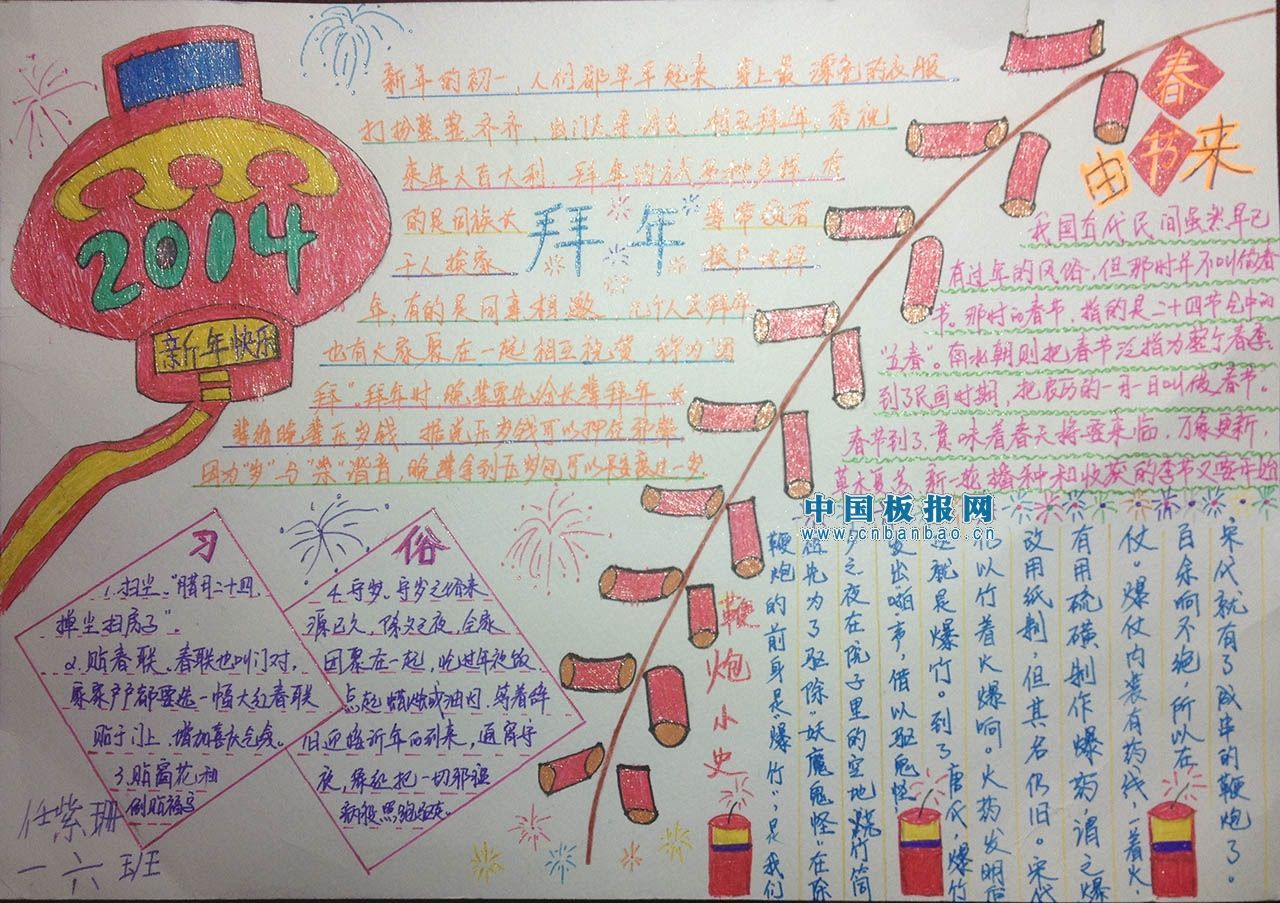 2014
新年快乐
新年的初一,人们都早早起来,穿上最漂亮的衣服
打扮整整齐齐,出门去亲朋友,相互拜年,恭祝
来年大吉大利,拜年的方式多种多样,有
的是同族长
拜年
带领若
干人挨家
挨户地拜
年;有的是同事相邀几个人去拜年
也有大家聚在一起相互祝贺,称为"团
拜"。拜年时,晚辈要先给长辈拜年,长
辈将晚辈压岁钱,据说压岁钱可以押住邪祟,
因为"岁"与"祟"谐音,晚辈拿到压岁可以平安一岁.
春节由来
我国古代民间虽然早已
有过年的风俗,但那时并不叫做春
节。那时的春节,指的是二十四节令中的
"立春"。南北朝则把春节泛指为整个春季。
到了民国时期,把农历的一月一日叫做春节。
春节到了,意味着春天将要来临,万象更新,
草木复苏,新一轮播种和收获的季节又要开始
中国板报网
www.cnbanbao.cn
习俗
1.扫尘。"腊月二十四,
掸尘扫房子"。
2.贴春联。春联也叫门对,
家家户户都要选一幅大红春联
贴于门上,增加喜庆气氛。
3.贴窗花和
倒贴福字
4.守岁。守岁之俗来
源已久,除夕之夜,全家
团聚在一起,吃过年夜饭
点起蜡烛或油灯,等着辞
旧迎新年的到来,通宵守
夜,象征把一切邪
病疫照跑驱走。
鞭炮小史
鞭炮的前身是"爆竹",是我们
祖先为了驱除"妖魔鬼怪"在除
夕之夜在院子里的空地,烧竹筒
发出啪声,借以驱鬼怪
这就是爆竹。到了唐代,爆竹
们以竹着火爆响。火药发明后
改用纸制,但其名仍旧。宋代
有用硫磺制作爆药,谓之爆
仗。爆仗内装有药线,一着火,
百余响不绝,所以在
宋代就有了成串的鞭炮了。
任紫珊
一六班